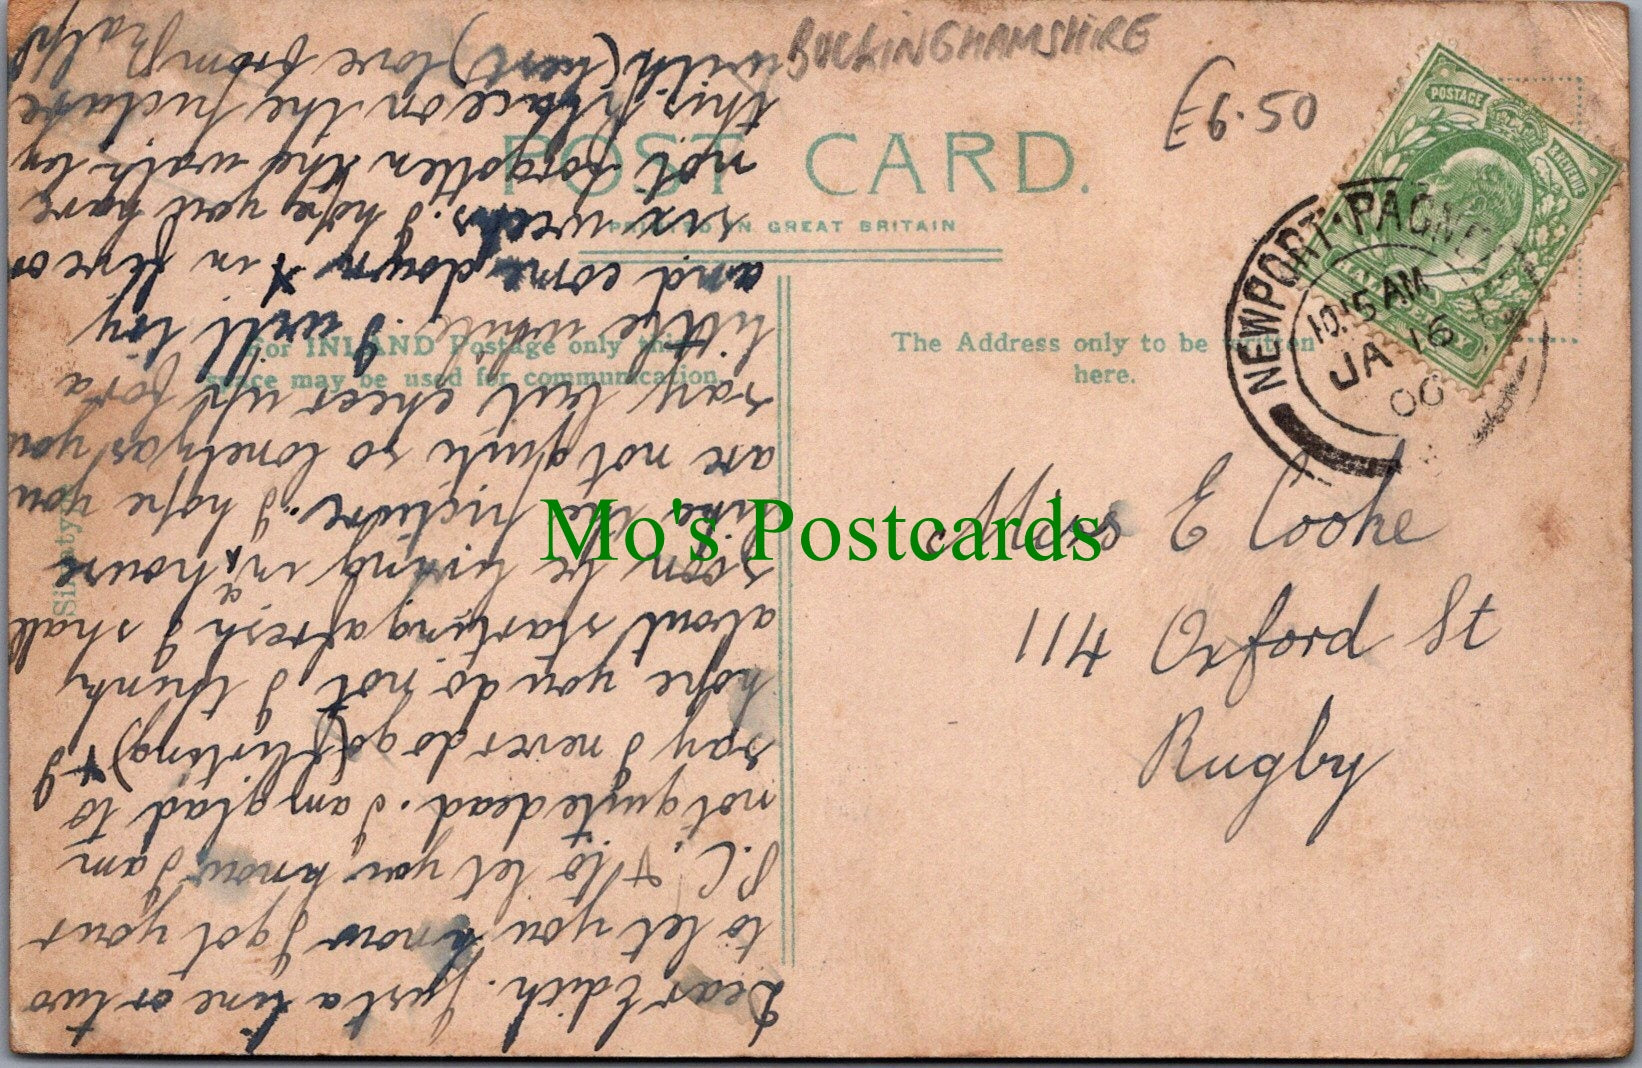 BUCKINGHAMSHIRE
£6.50
POST CARD.
PRINTED IN GREAT BRITAIN
For INLAND Postage only this
space may be used for communication.
The Address only to be written
here.
POSTAGE
HALFPENNY
NEWPORT·PAGNELL
10.15AM
JA 16
06
Miss E Cooke
114 Oxford St
Rugby
Dear Edith. Just a line or two
to let you know I got your
P.C. & to let you know I am
not quite dead. I am glad to
say I never do go (flirting) & I
hope you do not, I think
about starting afresh I shall
soon be living in a house
like the picture. I hope you
are not quite so lonely as you
say but cheer up for a
little while. I will try
and come down & in five or
six weeks. I hope you have
not forgotten the walk by
this place on the picture
with (best) love from Ralph
Mo's Postcards